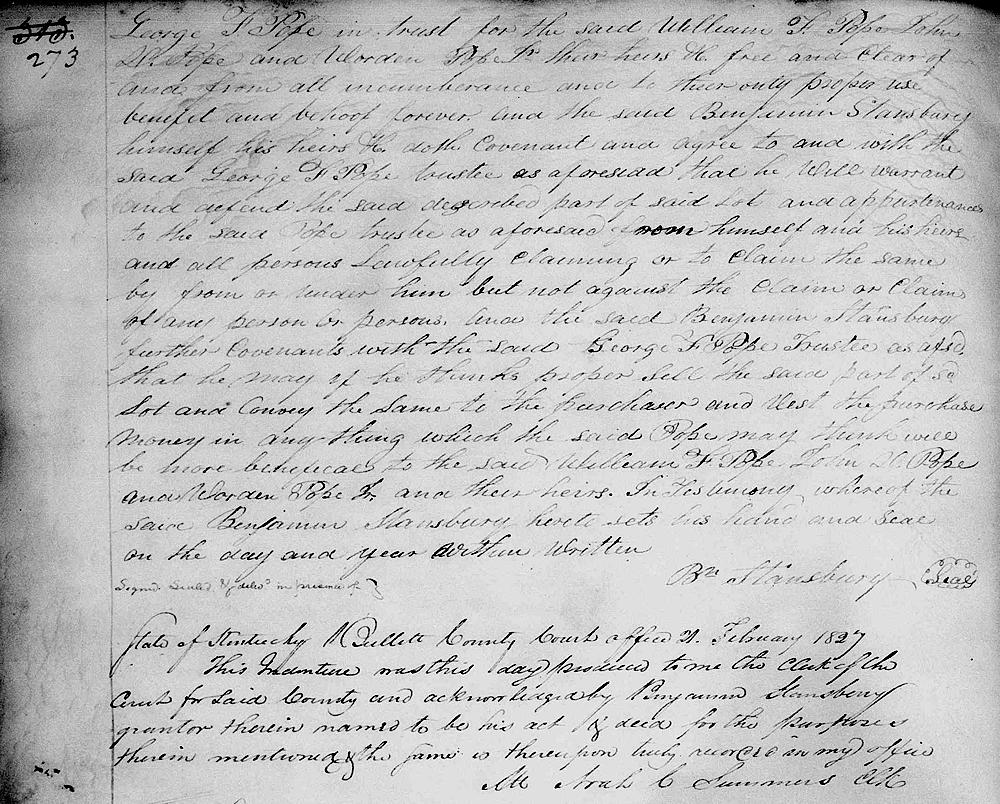 313.
273
George F Pope in trust for the said William F. Pope John
W. Pope and Worden Pope Jr their heirs &c. free and Clear of
and from all incumberance and to their only proper use
benefit and behoof forever. and the said Benjamin Stansbury
himself his heirs &c. doth Covenant and agree to and with the
said George F Pope trustee as aforesaid that he Will warrant
and defend the said described part of said Lot and appurtenances
to the said Pope trustee as aforesaid from himself and his heirs
and all persons Lawfully Claiming or to Claim the same
by from or under him but not against the Claim or Claims
of any person or persons. and the said Benjamin Stansbury
further Covenants with the said George F Pope Trustee as afsd.
that he may if he thinks proper sell the said part of sd
Lot and Convey the same to the purchaser and Vest the purchase
money in any thing which the said Pope may think will
be more beneficial to the said William F. Pope John W Pope
and Worden Pope Jr. and their heirs. In Testimony whereof the
said Benjamin Stansbury hereto sets his hand and seal
on the day and year Within Written
Bn Stansbury Seal
Signed Sealed & delivd in presence of }
State of Kentucky Bullett County Court office 21. February 1827
This Indenture was this day produced to me the Clerk of the
Court for said County and acknowledged by Benjamin Stansbury
grantor therein named to be his act & deed for the purposes
therein mentioned & the same is thereupon duly recorded in my office
Att Noah C Summers Clk